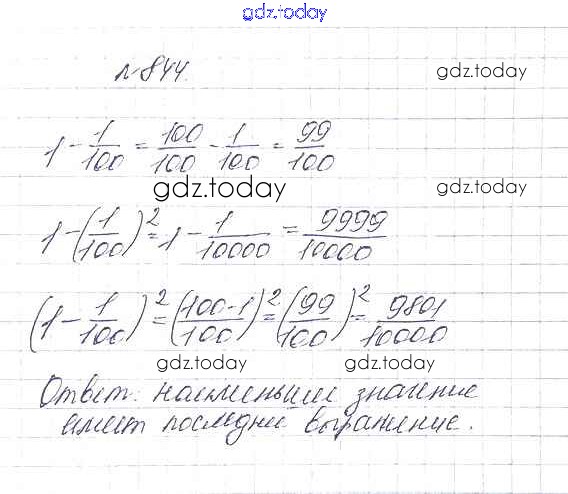 gdz.today
№844.
gdz.today
1 - 1/100 = 100/100 - 1/100 = 99/100
gdz.today
gdz.today
1 - (1/100)² = 1 - 1/10000 = 9999/10000
(1 - 1/100)² = (100-1/100)² = (99/100)² = 9801/10000
gdz.today
gdz.today
Ответ: наименьшее значение
имеет последнее выражение.